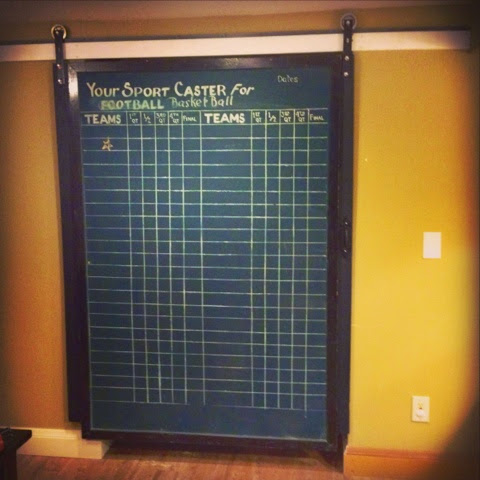 Dates
YOUR SPORT CASTER For
FOOTBALL BasketBall
TEAMS 1ST QT 1/2 3RD QT 4TH QT FINAL TEAMS 1ST QT 1/2 3RD QT 4TH QT FINAL